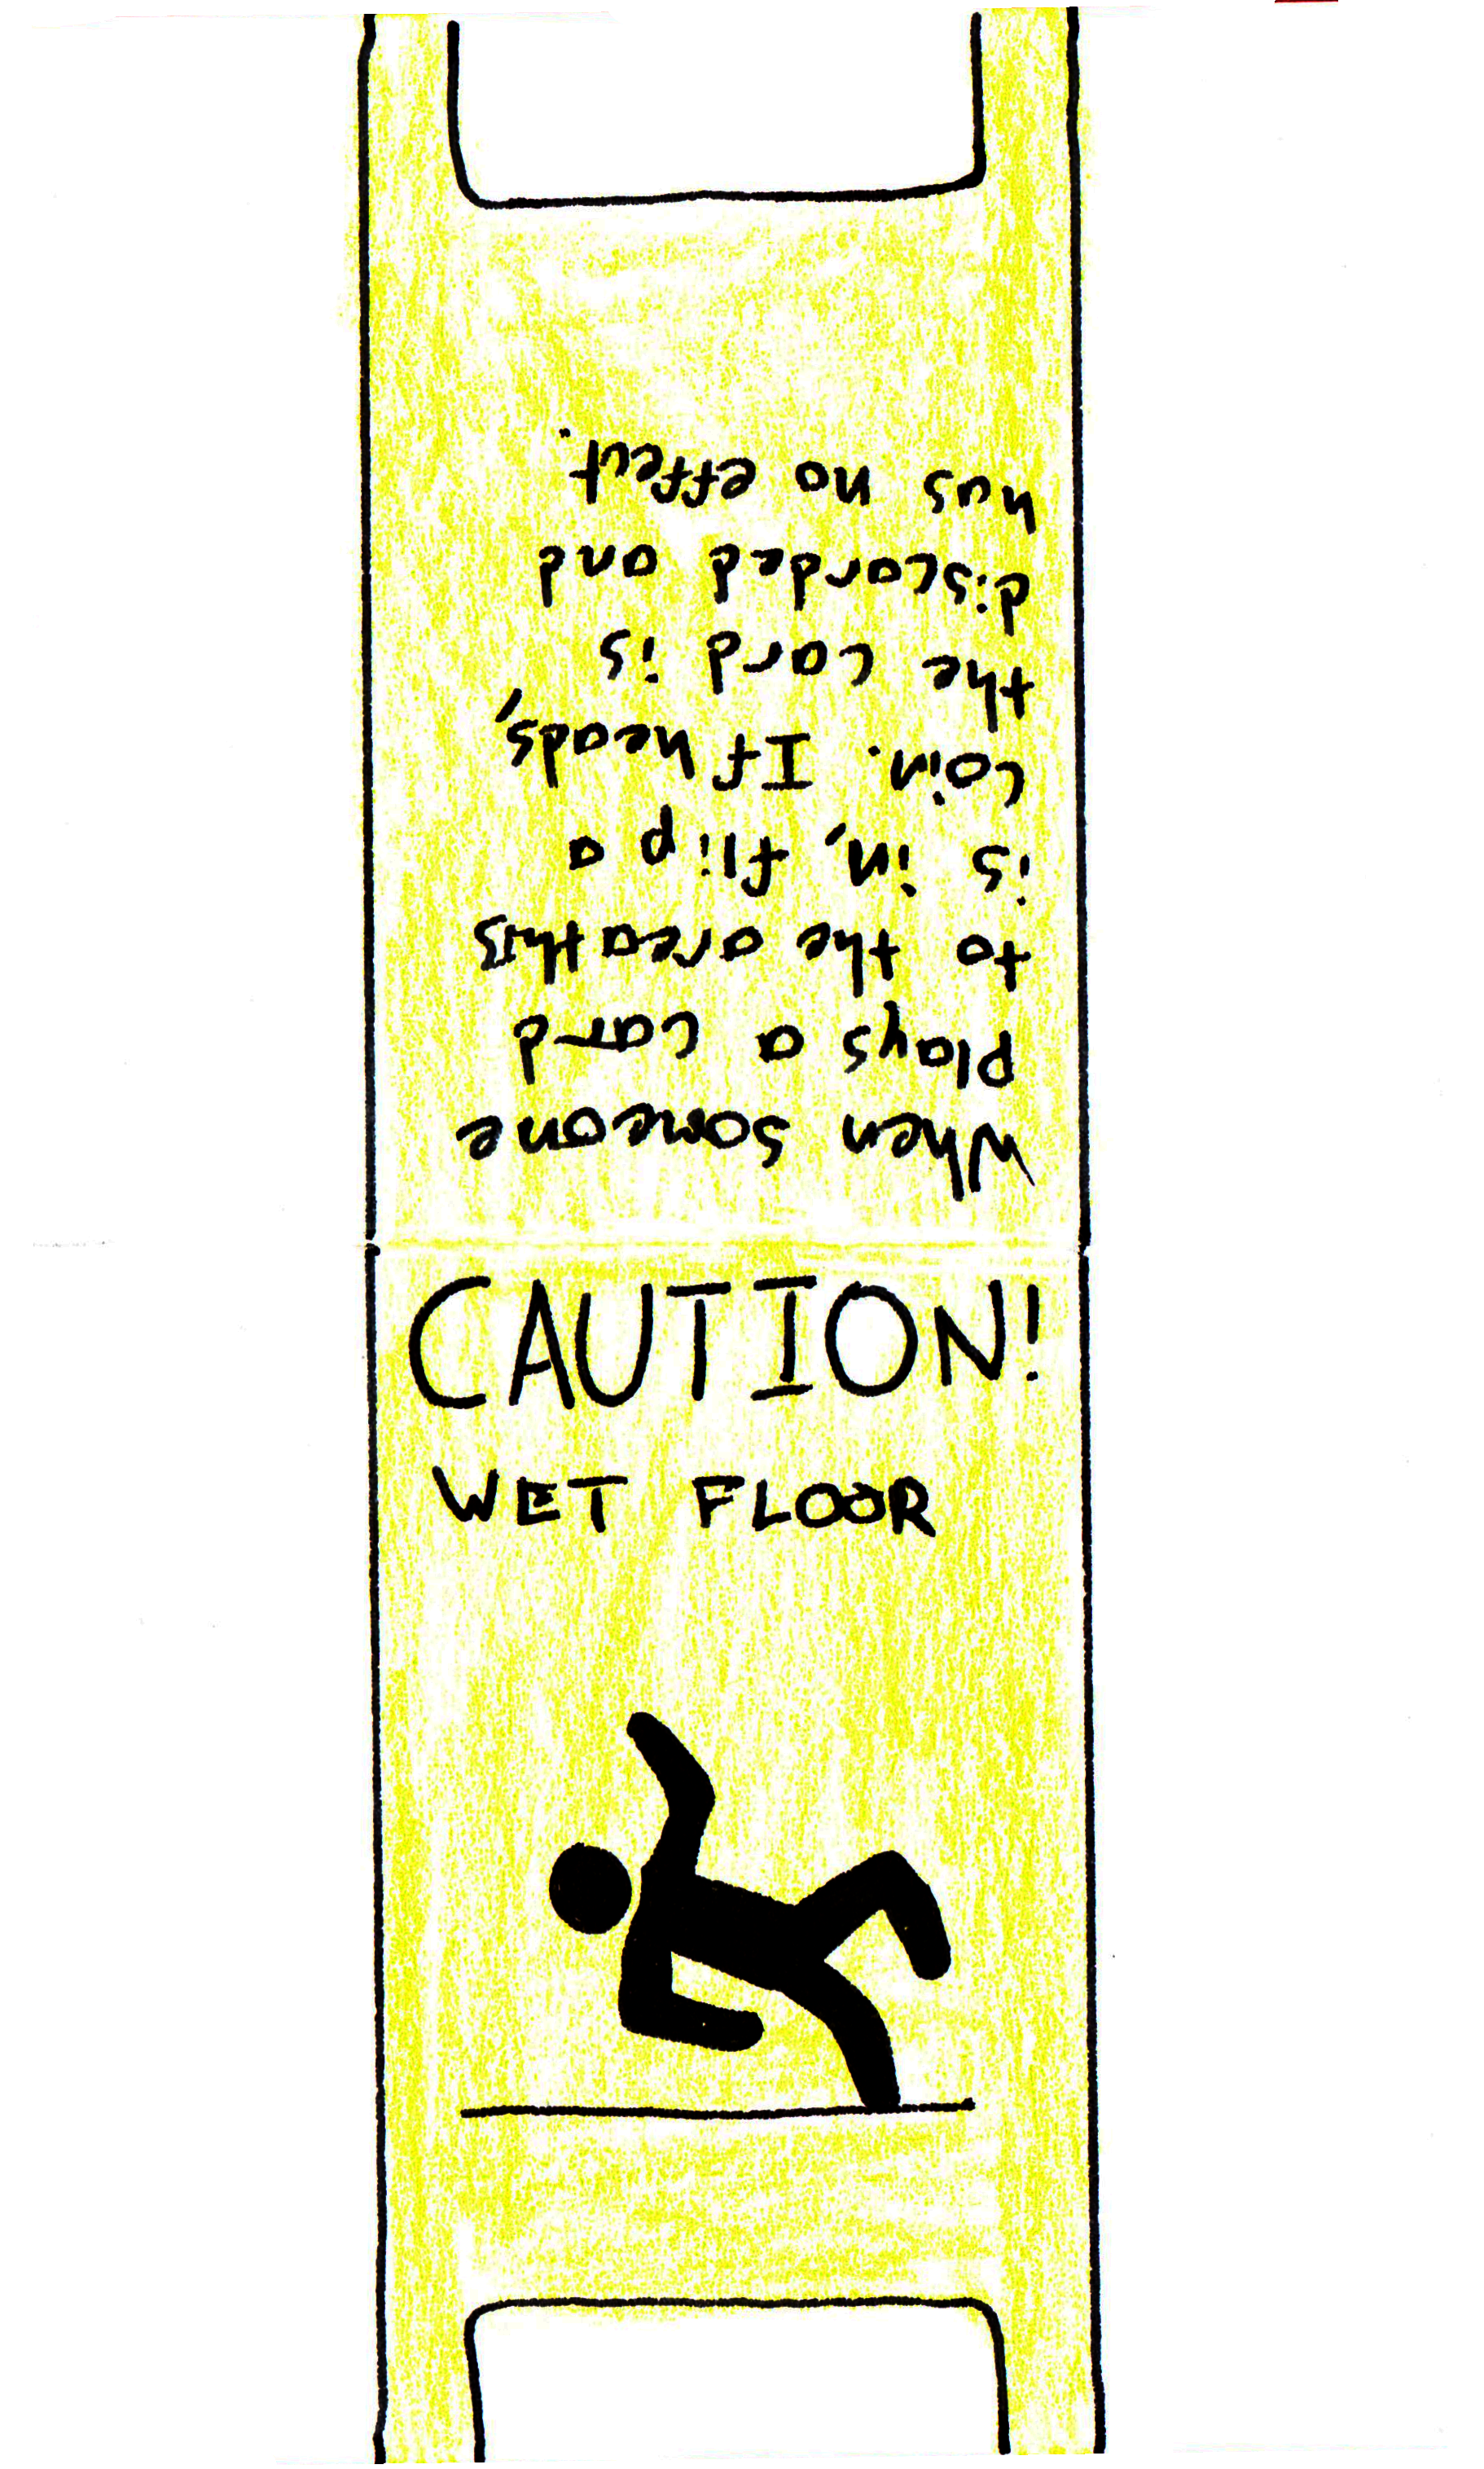 When someone
plays a card
to the area this
is in, flip a
coin. If heads,
the card is
discarded and
has no effect.
CAUTION!
WET FLOOR